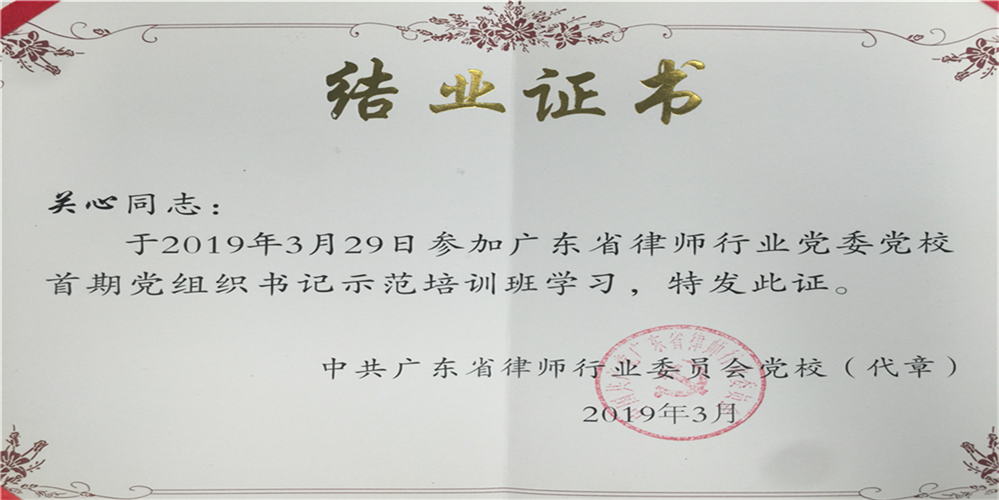 结业证书
关心同志：
于2019年3月29日参加广东省律师行业党委党校
首期党组织书记示范培训班学习，特发此证。
中共广东省律师行业委员会党校（代章）
2019年3月